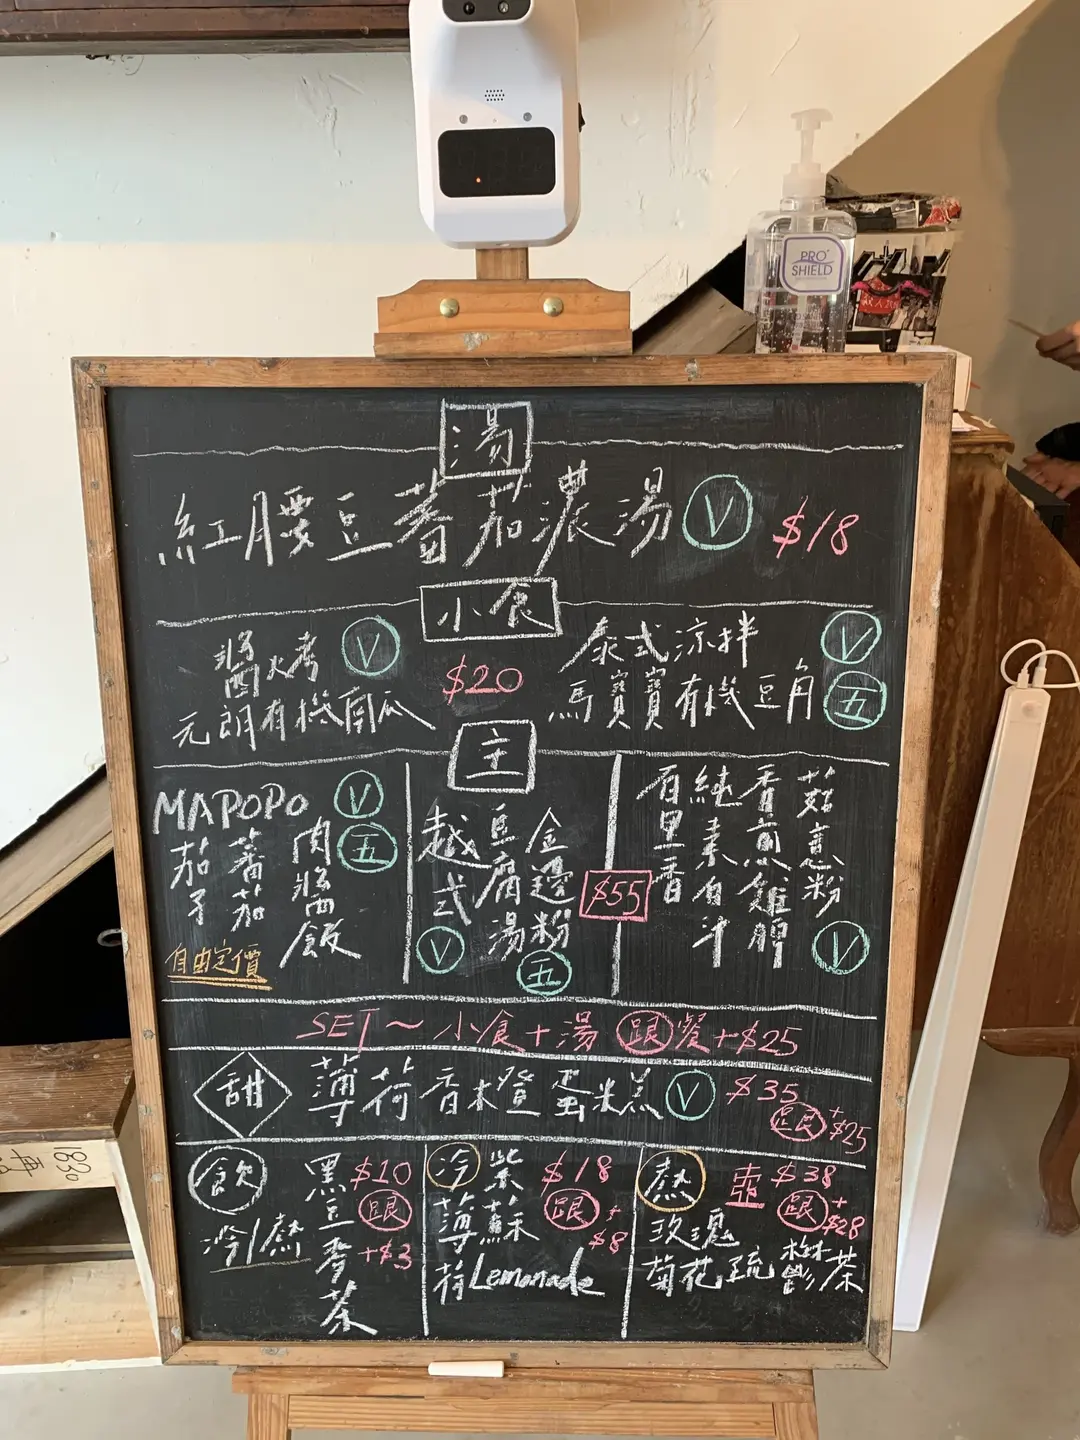 PRO+
SHIELD
湯
紅腰豆蕃茄濃湯 V $18
小食
醬火考
元朗有機南瓜
V
$20
泰式涼拌
馬寶寶有機豆角
V
五
主
MAPOPO
茄子
蕃茄
肉醬飯
V
五
自由定價
越式
豆腐湯
金邊粉
V
五
$55
百里香
純素白汁
香煎雞髀
菇意粉
V
SET~小食+湯 跟餐+$25
甜 薄荷香橙蛋糕 V $35
跟+$25
飲
冷/熱
黑豆麥茶
$10
跟
+$3
冷
紫蘇
薄荷Lemonade
$18
跟
+$8
熱
壺 $38
跟+$28
玫瑰
菊花疏鬱茶
1830